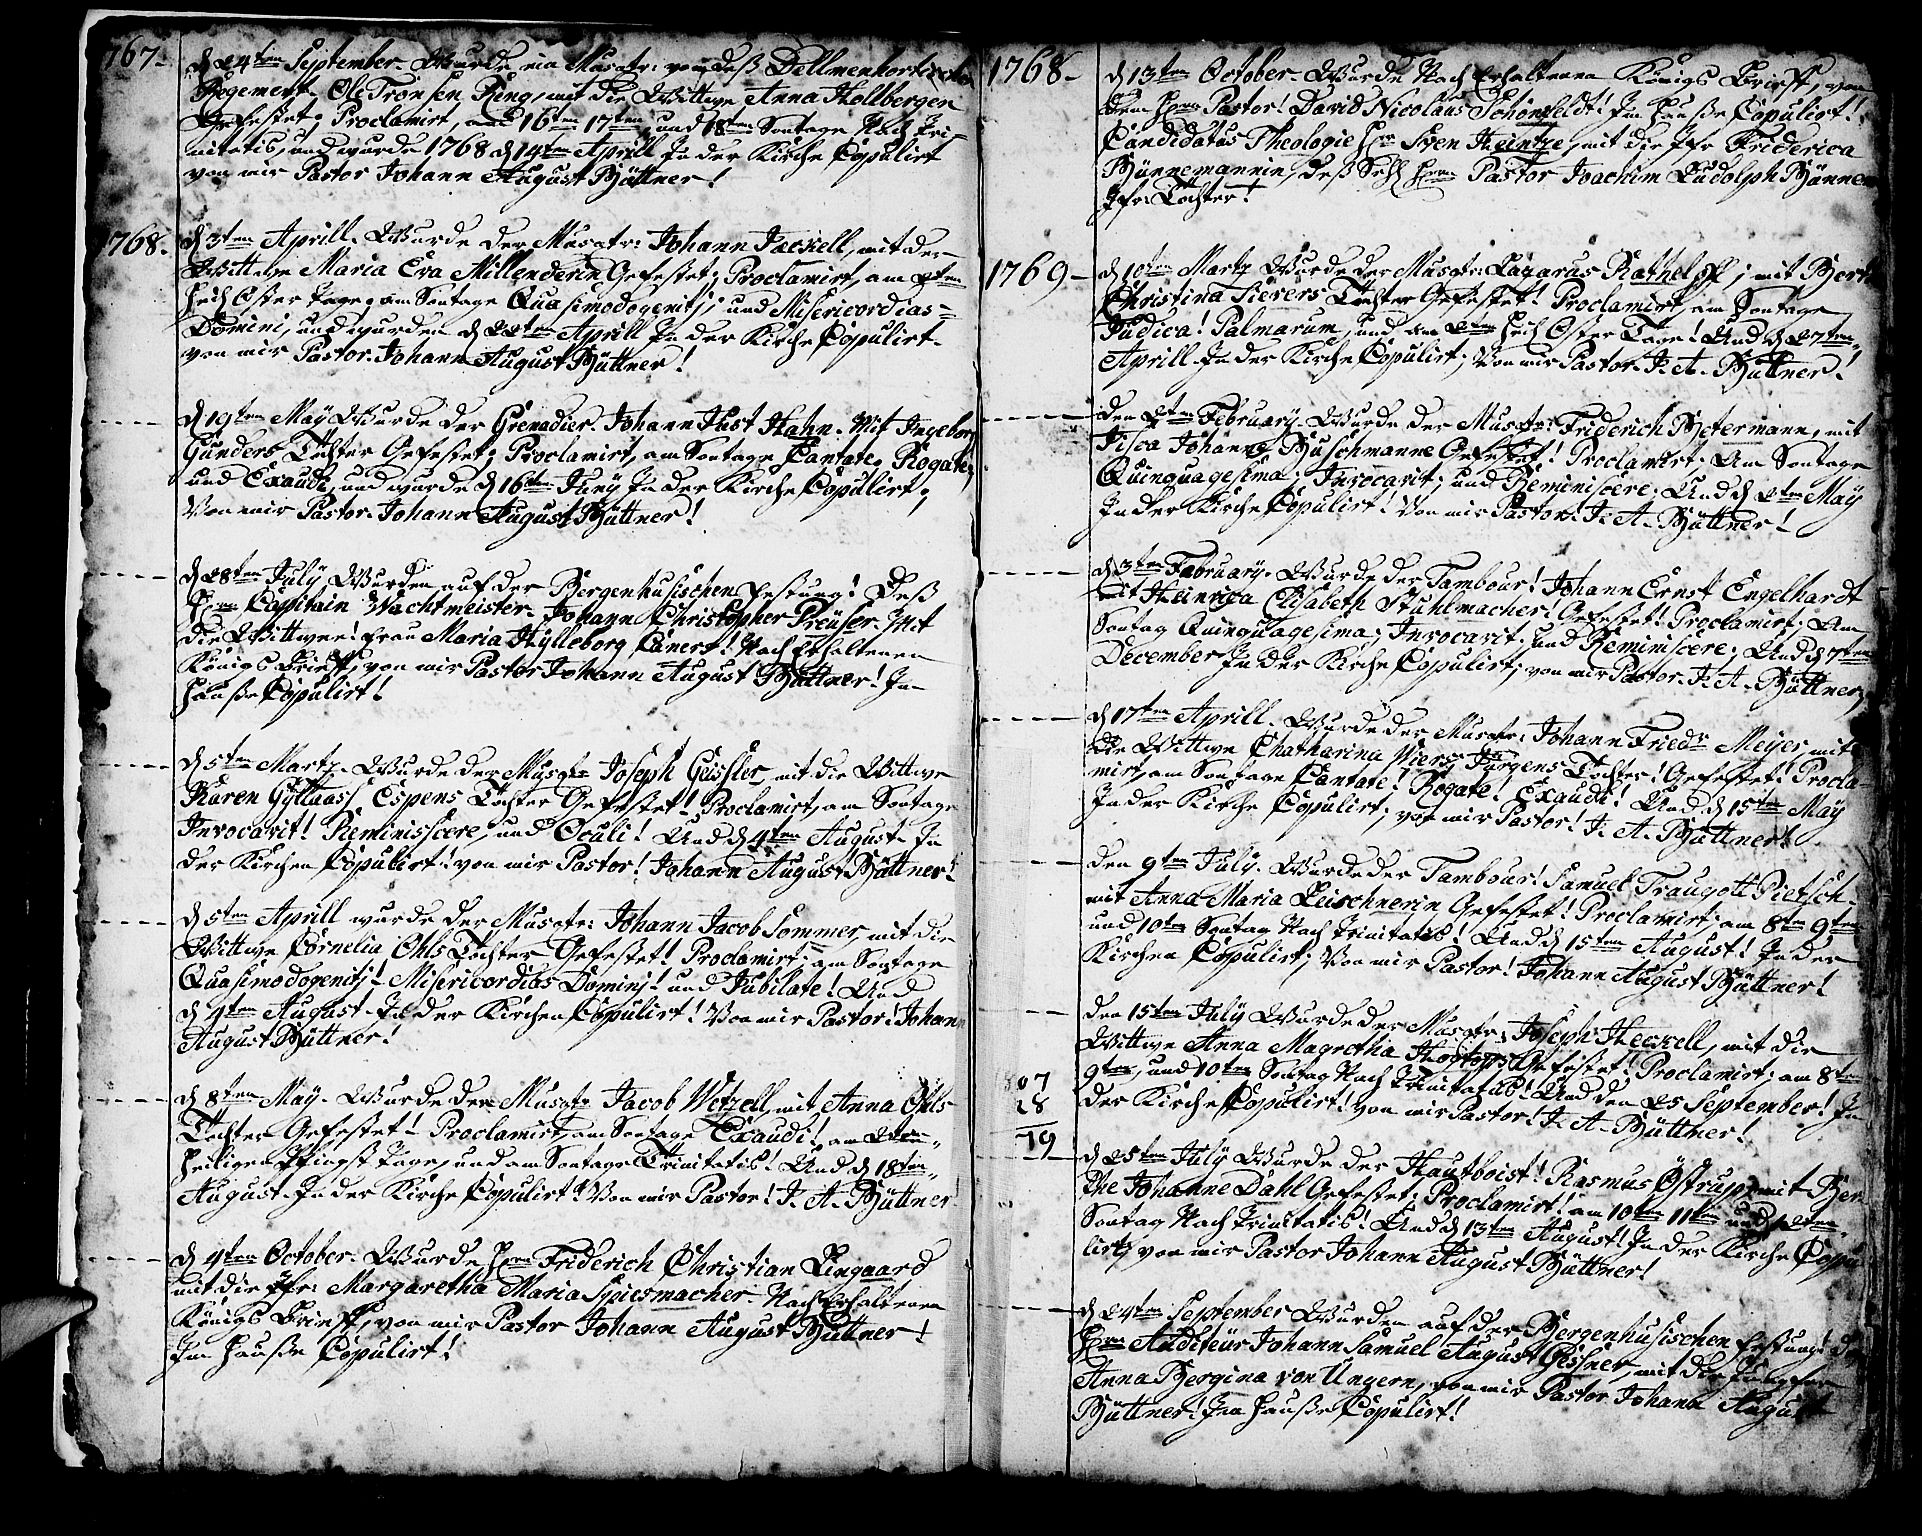 767-
d 24ten September. Wurde ein Musqtr: von deß Dellmenhorstischen
Regement. Ole Tronsen Ring, mit die Wittwe Anna Hollbergen
Gefestet; Proclamirt, am 16ten 17ten und 18ten Sontage Nach Tri-
nitatis, und wurde 1768 d 14ten Aprill In der Kirche Copulirt
von mir Pastor Johann August Büttner!
768.
d 3ten Aprill. Wurde der Musqtr: Johann Jackell, mit der
Wittwe Maria Eva Millenderin Gefestet; Proclamirt, am 2ten
Heil Oster Tage, am Sontage Quasimodogenitj; und Misericordias=
Domini, und wurden d 22ten Aprill In der Kirche Copulirt
von mir Pastor Johann August Büttner!
d 19ten Maÿ Wurde der Grenadier. Johann Just Hahn. Mit Ingeborg
Gunders Tochter Gefestet; Proclamirt, am Sontage Cantate, Rogate,
und Exaudi, und wurde d 16ten Junÿ In der Kirche Copulirt,
Von mir Pastor Johann August Büttner!
d 28ten Julÿ Wurden auf der Bergenhusischen Festung! Deß
Hrn Capitain Wachtmeister Johann Christopher Preüser. Mit
die Wittwe! Frau Maria Hylleborg Canert! Nach Erhaltenen
Königs Brieff, von mir Pastor Johann August Büttner! In
Hauße Copulirt!
d 5ten Martz. Wurde der Musqtr Joseph Geissler, mit die Wittwe
Karen Gyllaass Espens Tochter Gefestet! Proclamirt, am Sontage
Invocavit! Reminiscere, und Oculi! Und d 4ten August In
der Kirchen Copulirt! von mir Pastor! Johann August Büttner!
d 5ten Aprill wurde der Musqtr: Johann Jacob Sommer, mit die
Wittwe Cornelia Ohls Tochter Gefestet! Proclamirt, am Sontage
Quasimodogenitj! Misericordias Dominj! und Jubilate! Und
d 4ten August In der Kirchen Copulirt! Von mir Pastor! Johann
August Büttner!
d 8ten Maÿ. Wurde der Musqtr Jacob Wetzell, mit Anna Ohls
Tochter Gefestet! Proclamirt, am Sontage Exaudi! am 2ten
Heiligen Pfingst Tage, und am Sontage Trinitatis! Und d 18ten
August In der Kirche Copulirt! Von mir Pastor! J. A. Büttner
d 4ten October. Wurde Hrn Friderich Christian Lingaard
mit die Jfr: Margaretha Maria Spiesmacher. Nach Erhaltenen
Königs Brieff, von mir Pastor Johann August Büttner!
Im Hauße Copulirt!
1768-
d 13ten October. Wurde Nach Erhaltenen Königs Brieff, von
dem Hrn Pastor! David Nicolaus Schönfeldt! Im Hauße Copulirt!
Candidatus Theologie Hr Sven Heintze, mit die Jfr Friderica
Bünnemannin, deß Sehl Hrn Pastor Joachim Ludolph Bünnem
Jfr: Tochter!
1769-
d 10ten Martz Wurde der Musqtr: Lazarus Ratheloff, mit Berte
Christina Sievers Tochter Gefestet! Proclamirt, am Sontage
Judica! Palmarum, und am 2ten Heil Oster Tage! Und d 27ten
Aprill In der Kirche Copulirt; Von mir Pastor J. A. Büttner!
den 2ten February. Wurde der Musqtr: Friderich Betermann, mit
Fisca Johanne Buschmanne Gefestet! Proclamirt; Am Sontage
Quinquagesima; Invocavit; und Reminiscere; Und d 2ten Maÿ
In der Kirche Copulirt! Von mir Pastor! J. A. Büttner!
d 3ten February. Wurde der Tambour! Johann Ernst Engelhardt
mit Heinrica Elisabeth Stuhlmacher! Gefestet! Proclamirt; Am
Sontag Quinquagesima, Invocavit. und Reminiscere; Und d 7ten
December In der Kirche Copulirt; von mir Pastor. J. A. Büttner;
d 17ten Aprill. Wurde der Musqtr: Johann Friedr Meyer, mit
die Wittwe Chatharina Wiers Jürgens Tochter! Gefestet! Procla-
mirt, am Sontage Cantate! Rogate! Exaudi! Und d 15ten May
In der Kirche Copulirt; von mir Pastor! J. A. Büttner!
den 9ten July. Wurde der Tambour! Samuel Traugott Pietsch
mit Anna Maria Leischnerin Gefestet! Proclamirt, am 8ten 9ten
und 10ten Sontag Nach Trinitatis! Und d 15ten August! In der
Kirchen Copulirt; Von mir Pastor! Johann August Büttner!
den 15ten July Wurde der Musqtr: Joseph Heckell, mit die
Wittwe Anna Magretha Gefestet! Proclamirt; am 8ten
9ten, und 10ten Sontag Nach Trinitatis! Und den 25 September! In
der Kirche Copulirt! von mir Pastor! J. A. Büttner!
1807
28
79
d 25ten July Wurde der Hautboist! Rasmus Östrup, mit Ber
the Johanne Dahl Gefestet; Proclamirt! am 10ten 11ten und 12ten
Sontag Nach Trinitatis! Und d 13ten August! In der Kirche Copu
lirt, von mir Pastor Johann August Büttner!
d 24ten September Wurden auf der Bergenhusischen Festung! Der
Hrn Auditeür Johann Samuel August Gessner, mit die Jungfer
Anna Bergina von Ungern, von mir Pastor Johann August
Büttner! Im Hauße Copulirt!